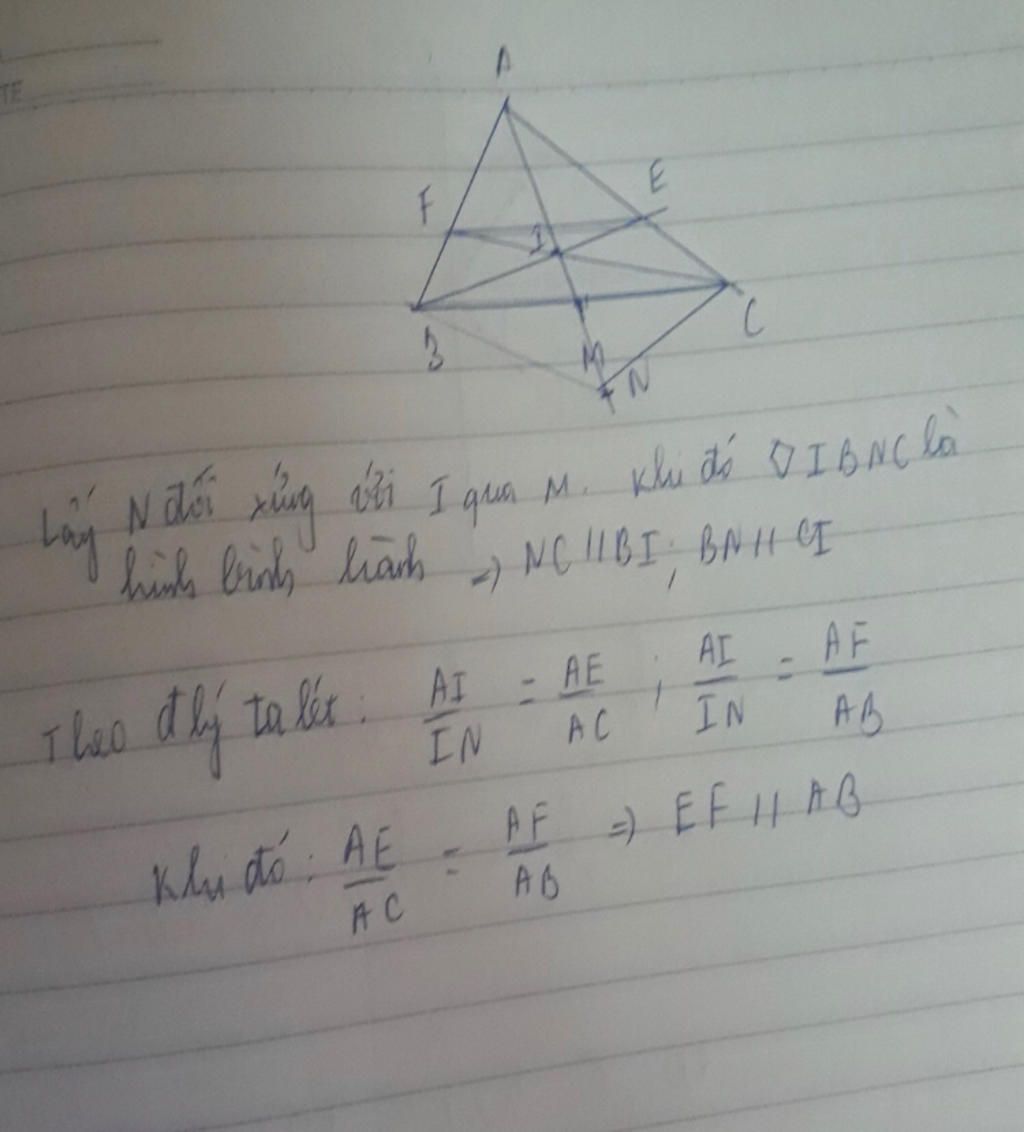 TE
A
F
E
I
B
M
C
N
Lấy N đối xứng với I qua M. Khi đó ▽IBNC là
hình bình hành => NC//BI; BN//CI
Theo đlý ta lét: AI/IN = AE/AC ; AI/IN = AF/AB
Khi đó: AE/AC = AF/AB => EF // AB